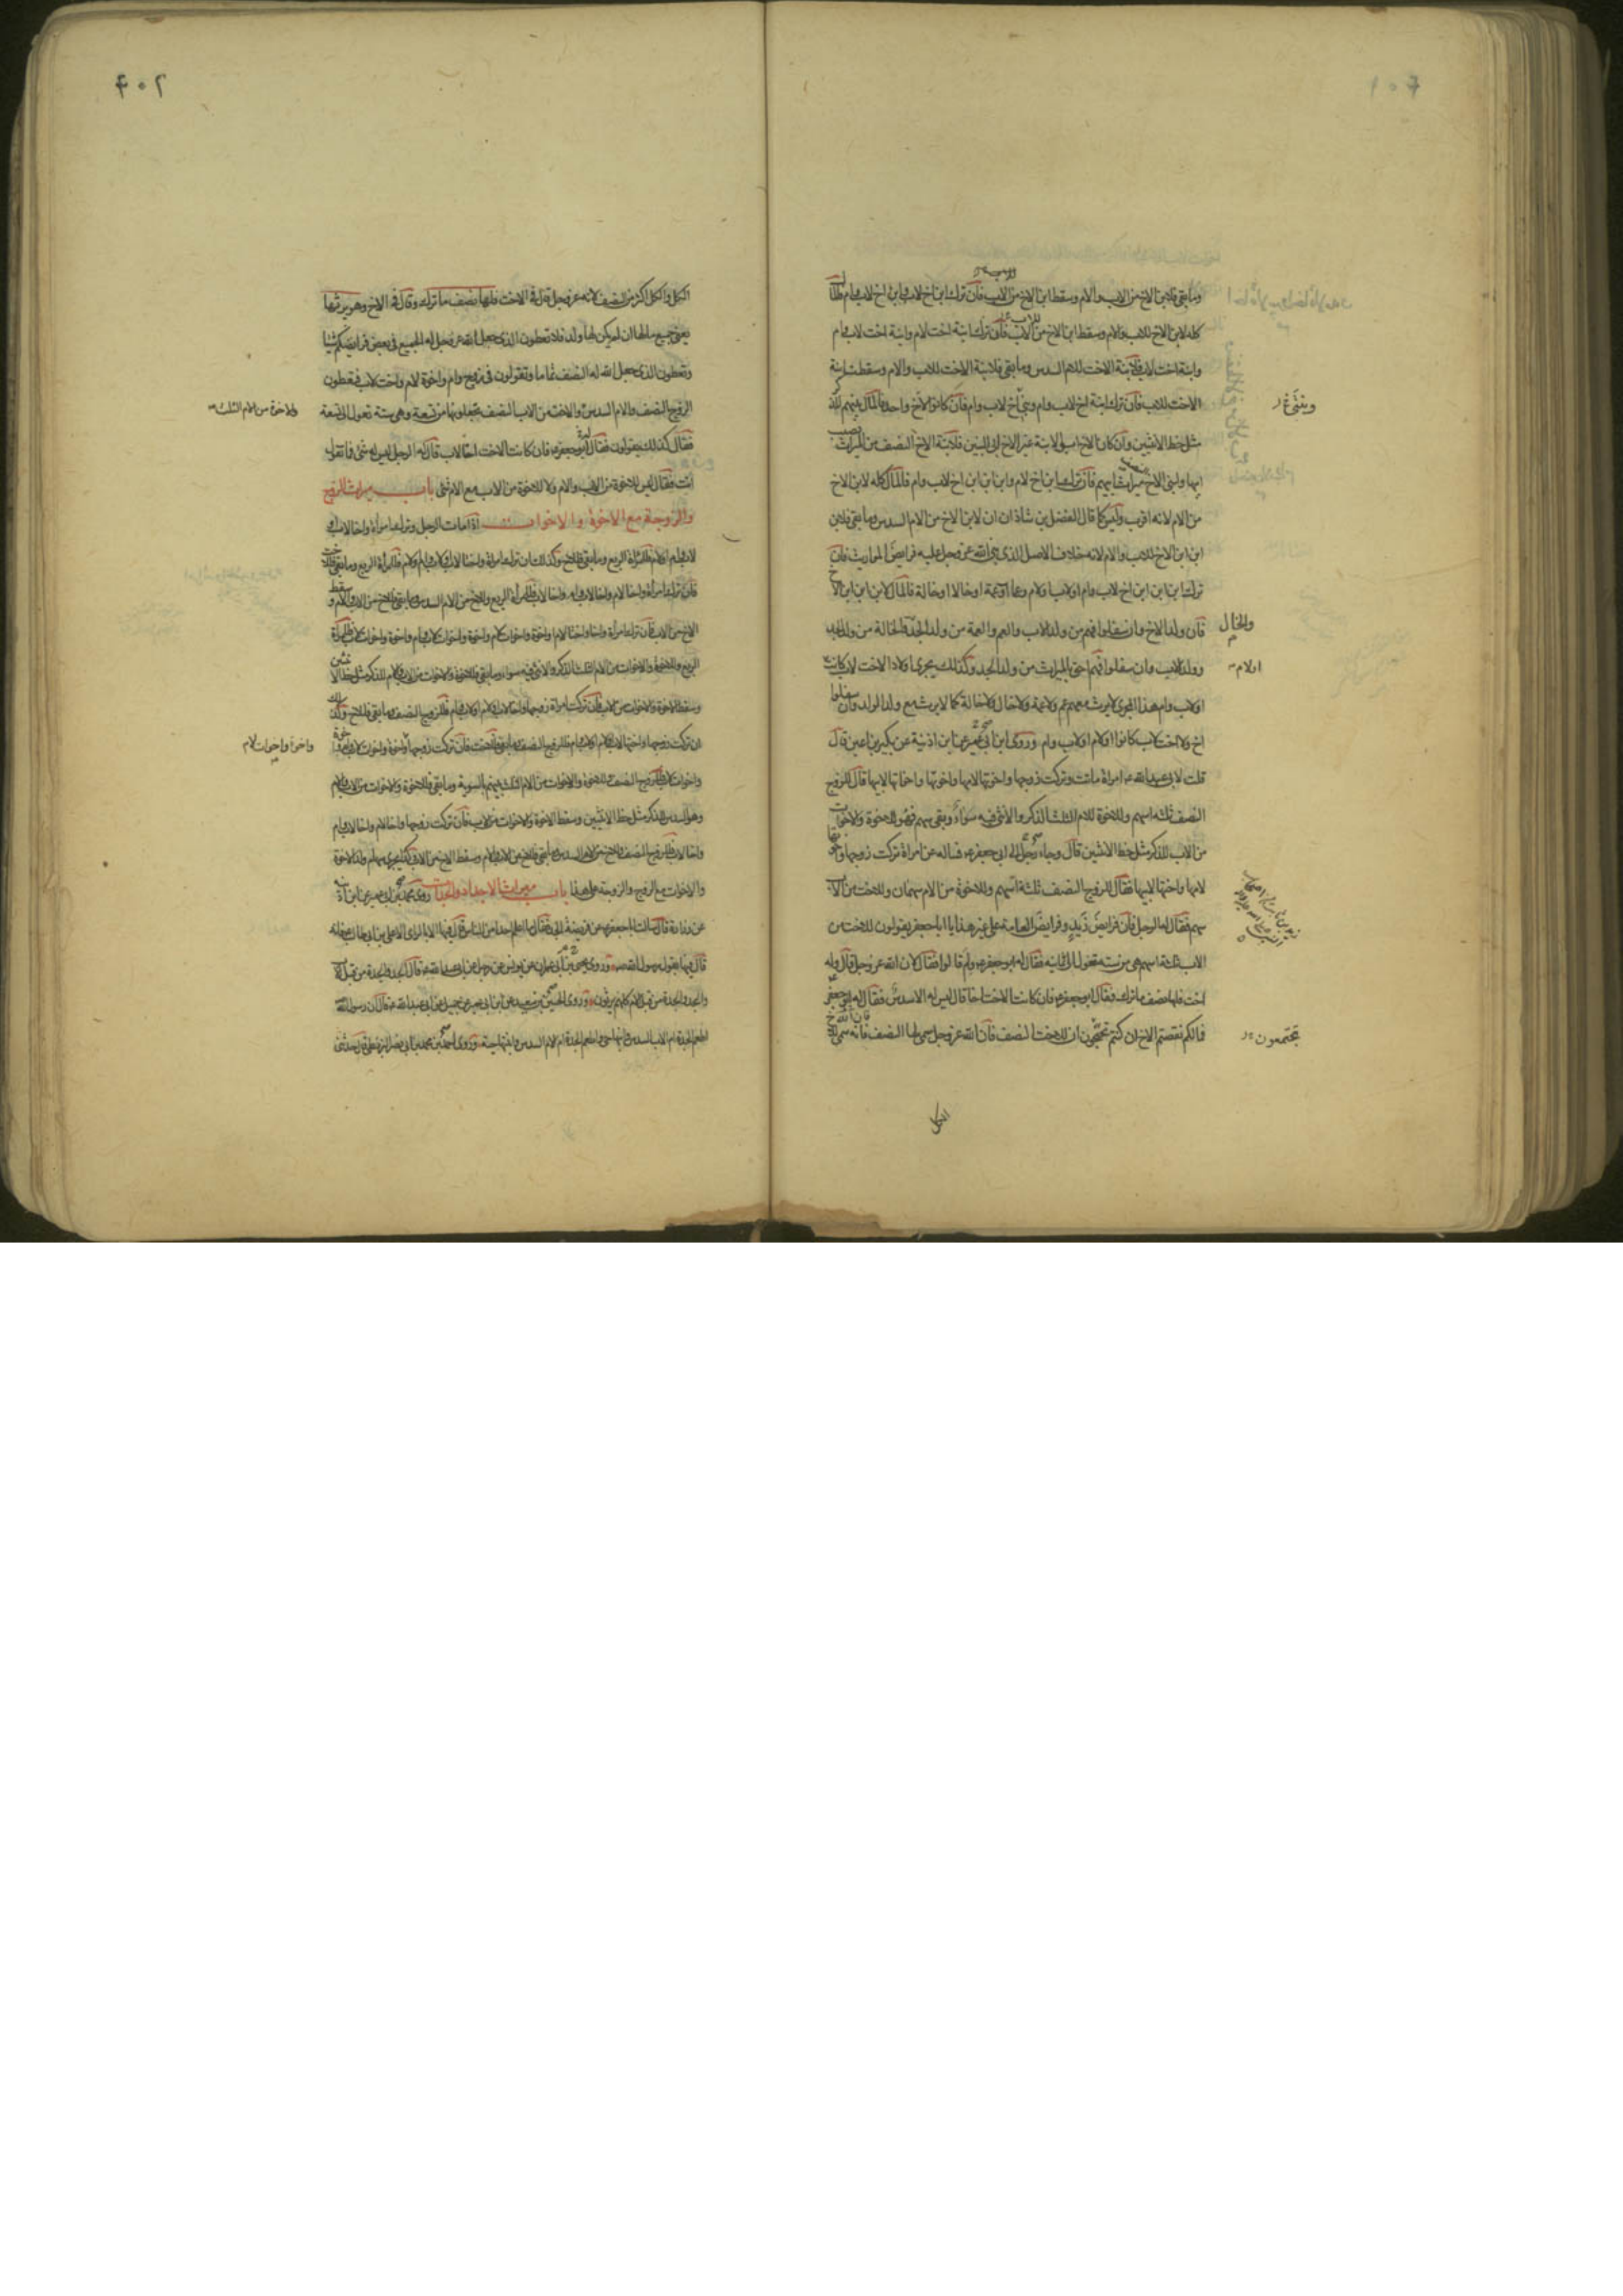 وما بقي فلابن الاخ من الاب والام وسقط ابن الاخ من الاب فان ترك ابن اخ لاب وابن اخ لاب وام فالمال
كله لابن الاخ للاب والام وسقط ابن الاخ من الاب فان ترك ابنة اخت لام وابنة اخت لاب وام
وابنة اخت لاب فلابنة الاخت للام السدس وما بقي فلابنة الاخت للاب والام وسقطت ابنة
الاخت للاب فان ترك ابنة اخ لاب وام وبني اخ لاب وام فان كانوا لاخ واحد فالمال بينهم للذكر
مثل حظ الانثيين وان كان الاخ ابو الابنة غير الاخ ابي البنين فلابنة الاخ النصف من الميراث
ابيها ولبني الاخ ميراث ابيهم فان ترك ابن اخ لام وابن ابن ابن اخ لاب وام فالمال كله لابن الاخ
من الام لانه اقرب وليس كما قال الفضل بن شاذان ان لابن الاخ من الام السدس وما بقي فلابن
ابن ابن الاخ للاب والام لانه خلاف الاصل الذي بنى الله عز وجل عليه فرايض المواريث فان
ترك ابن ابن ابن اخ لاب وام او لاب او لام وعما او عمة او خالا او خالة فالمال لابن ابن ابن الاخ
فان ولد الاخ وان سفلوا فهم من ولد الاب والعم والعمة من ولد الجد والخالة من ولد الجد
والخال
وولد الاب وان سفلوا فهم احق بالميراث من ولد الجد وكذلك يجري اولاد الاخت لاب كانت
او لام
او لاب وام هذا المجرى لا يرث معهم عم ولا عمة ولا خال ولا خالة كما لا يرث مع ولد الولد وان سفلوا
اخ ولا اخت لاب كانوا او لام او لاب وام وروى ابن ابي عمير عن ابن اذينة عن بكير بن اعين قال
قلت لابي عبد الله ع امراة ماتت وتركت زوجها واخوتها لامها واخوتها واخواتها لابيها قال للزوج
النصف ثلثة اسهم وللاخوة للام الثلث الذكر والانثى فيه سواء وبقي سهم فهو للاخوة والاخوات
من الاب للذكر مثل حظ الانثيين قال وجاء رجل الى ابي جعفر ع فساله عن امراة تركت زوجها واخوتها
لامها واختها لابيها فقال للزوج النصف ثلثة اسهم وللاخوة من الام سهمان وللاخت من الاب
سهم فقال له الرجل فان فرايض زيد وفرايض العامة على غير هذا يا ابا جعفر يقولون للاخت من
الاب ثلثة اسهم هي من ستة تعول الى ثمانية فقال له ابو جعفر ع ولم قالوا فقال لان الله عز وجل قال وله
اخت فلها نصف ما ترك فقال ابو جعفر ع فان كانت الاخت اخا قال ليس له الا السدس فقال له ابو جعفر
فما لكم نقصتم الاخ ان كنتم تحتجون ان للاخت النصف فان الله عز وجل سمى لها النصف فانه سمى للاخ
الكل
الكل والكل اكثر من النصف لانه عز وجل قال في الاخت فلها نصف ما ترك وقال في الاخ وهو يرثها
يعني جميع مالها ان لم يكن لها ولد فلا تعطون الذي جعل الله عز وجل له الجميع في بعض فرايضكم شيئا
وتعطون الذي جعل الله له النصف تماما وتقولون في زوج وام واخوة لام واخت لاب فيعطون
الزوج النصف والام السدس والاخت من الاب النصف يجعلونها من تسعة وهي ستة تعول الى تسعة
والاخوة من الام الثلث
فقال كذلك يقولون فقال له ابو جعفر ع فان كانت الاخت اخا لاب قال له الرجل ليس له شيء فما تقول
انت فقال ليس للاخوة من الاب والام ولا للاخوة من الاب مع الام شيء باب ميراث الزوج
والزوجة مع الاخوة والاخوات اذا مات الرجل وترك امراة واخا لاب او
لاب وام او لام فللمراة الربع وما بقي فللاخ وكذلك ان ترك امراة واختا لاب او لاب وام او لام فللمراة الربع وما بقي فللاخت
فان ترك امراة واخا لام واخا لاب وام واخا لاب فللمراة الربع وللاخ من الام السدس وما بقي فللاخ من الاب والام وسقط
الاخ من الاب فان ترك امراة واخا واختا لام واخوة واخوات لام واخوة واخوات لاب وام واخوة واخوات لاب فللمراة
الربع وللاخوة والاخوات من الام الثلث الذكر والانثى فيه سواء وما بقي فللاخوة والاخوات من الاب والام للذكر مثل حظ الانثيين
وسقط الاخوة والاخوات من الاب فان تركت امراة زوجها واخا لاب او لام او لاب وام فللزوج النصف وما بقي فللاخ وكذلك
ان تركت زوجها واختها لاب او لام او لاب وام فللزوج النصف وما بقي فللاخت فان تركت زوجها واخوة واخوات لاب وام واخوة
واخوة واخوات لام
واخوات لاب فللزوج النصف وللاخوة والاخوات من الام الثلث بينهم بالسوية وما بقي فللاخوة والاخوات من الاب والام
وهو السدس للذكر مثل حظ الانثيين وسقط الاخوة والاخوات من الاب فان تركت زوجها واخا لام واخا لاب وام
واخا لاب فللزوج النصف وللاخ من الام السدس وما بقي فللاخ من الاب والام وسقط الاخ من الاب وكذا يجري سهام ولد الاخوة
والاخوات مع الزوج والزوجة على هذا باب ميراث الاجداد والجدات روى محمد بن ابي عمير عن ابن اذينة
عن زرارة قال سالت ابا جعفر ع عن فريضة الجد فقال ما اعلم احدا من الناس قال فيها الا بالراي الا علي بن ابي طالب ع فانه
قال فيها بقول رسول الله ص وروى يحيى بن ابي عمران عن يونس عن رجل عن ابي عبد الله ع قال الجد والجدة من قبل الاب
والجد والجدة من قبل الام كلهم يرثون وروى الحسين بن سعيد عن ابن ابي عمير عن جميل عن ابي عبد الله ع قال ان رسول الله
اطعم الجدة ام الاب السدس وابنها حي واطعم الجدة ام الام السدس وابنتها حية وروى احمد بن محمد بن ابي نصر البزنطي قال حدثني